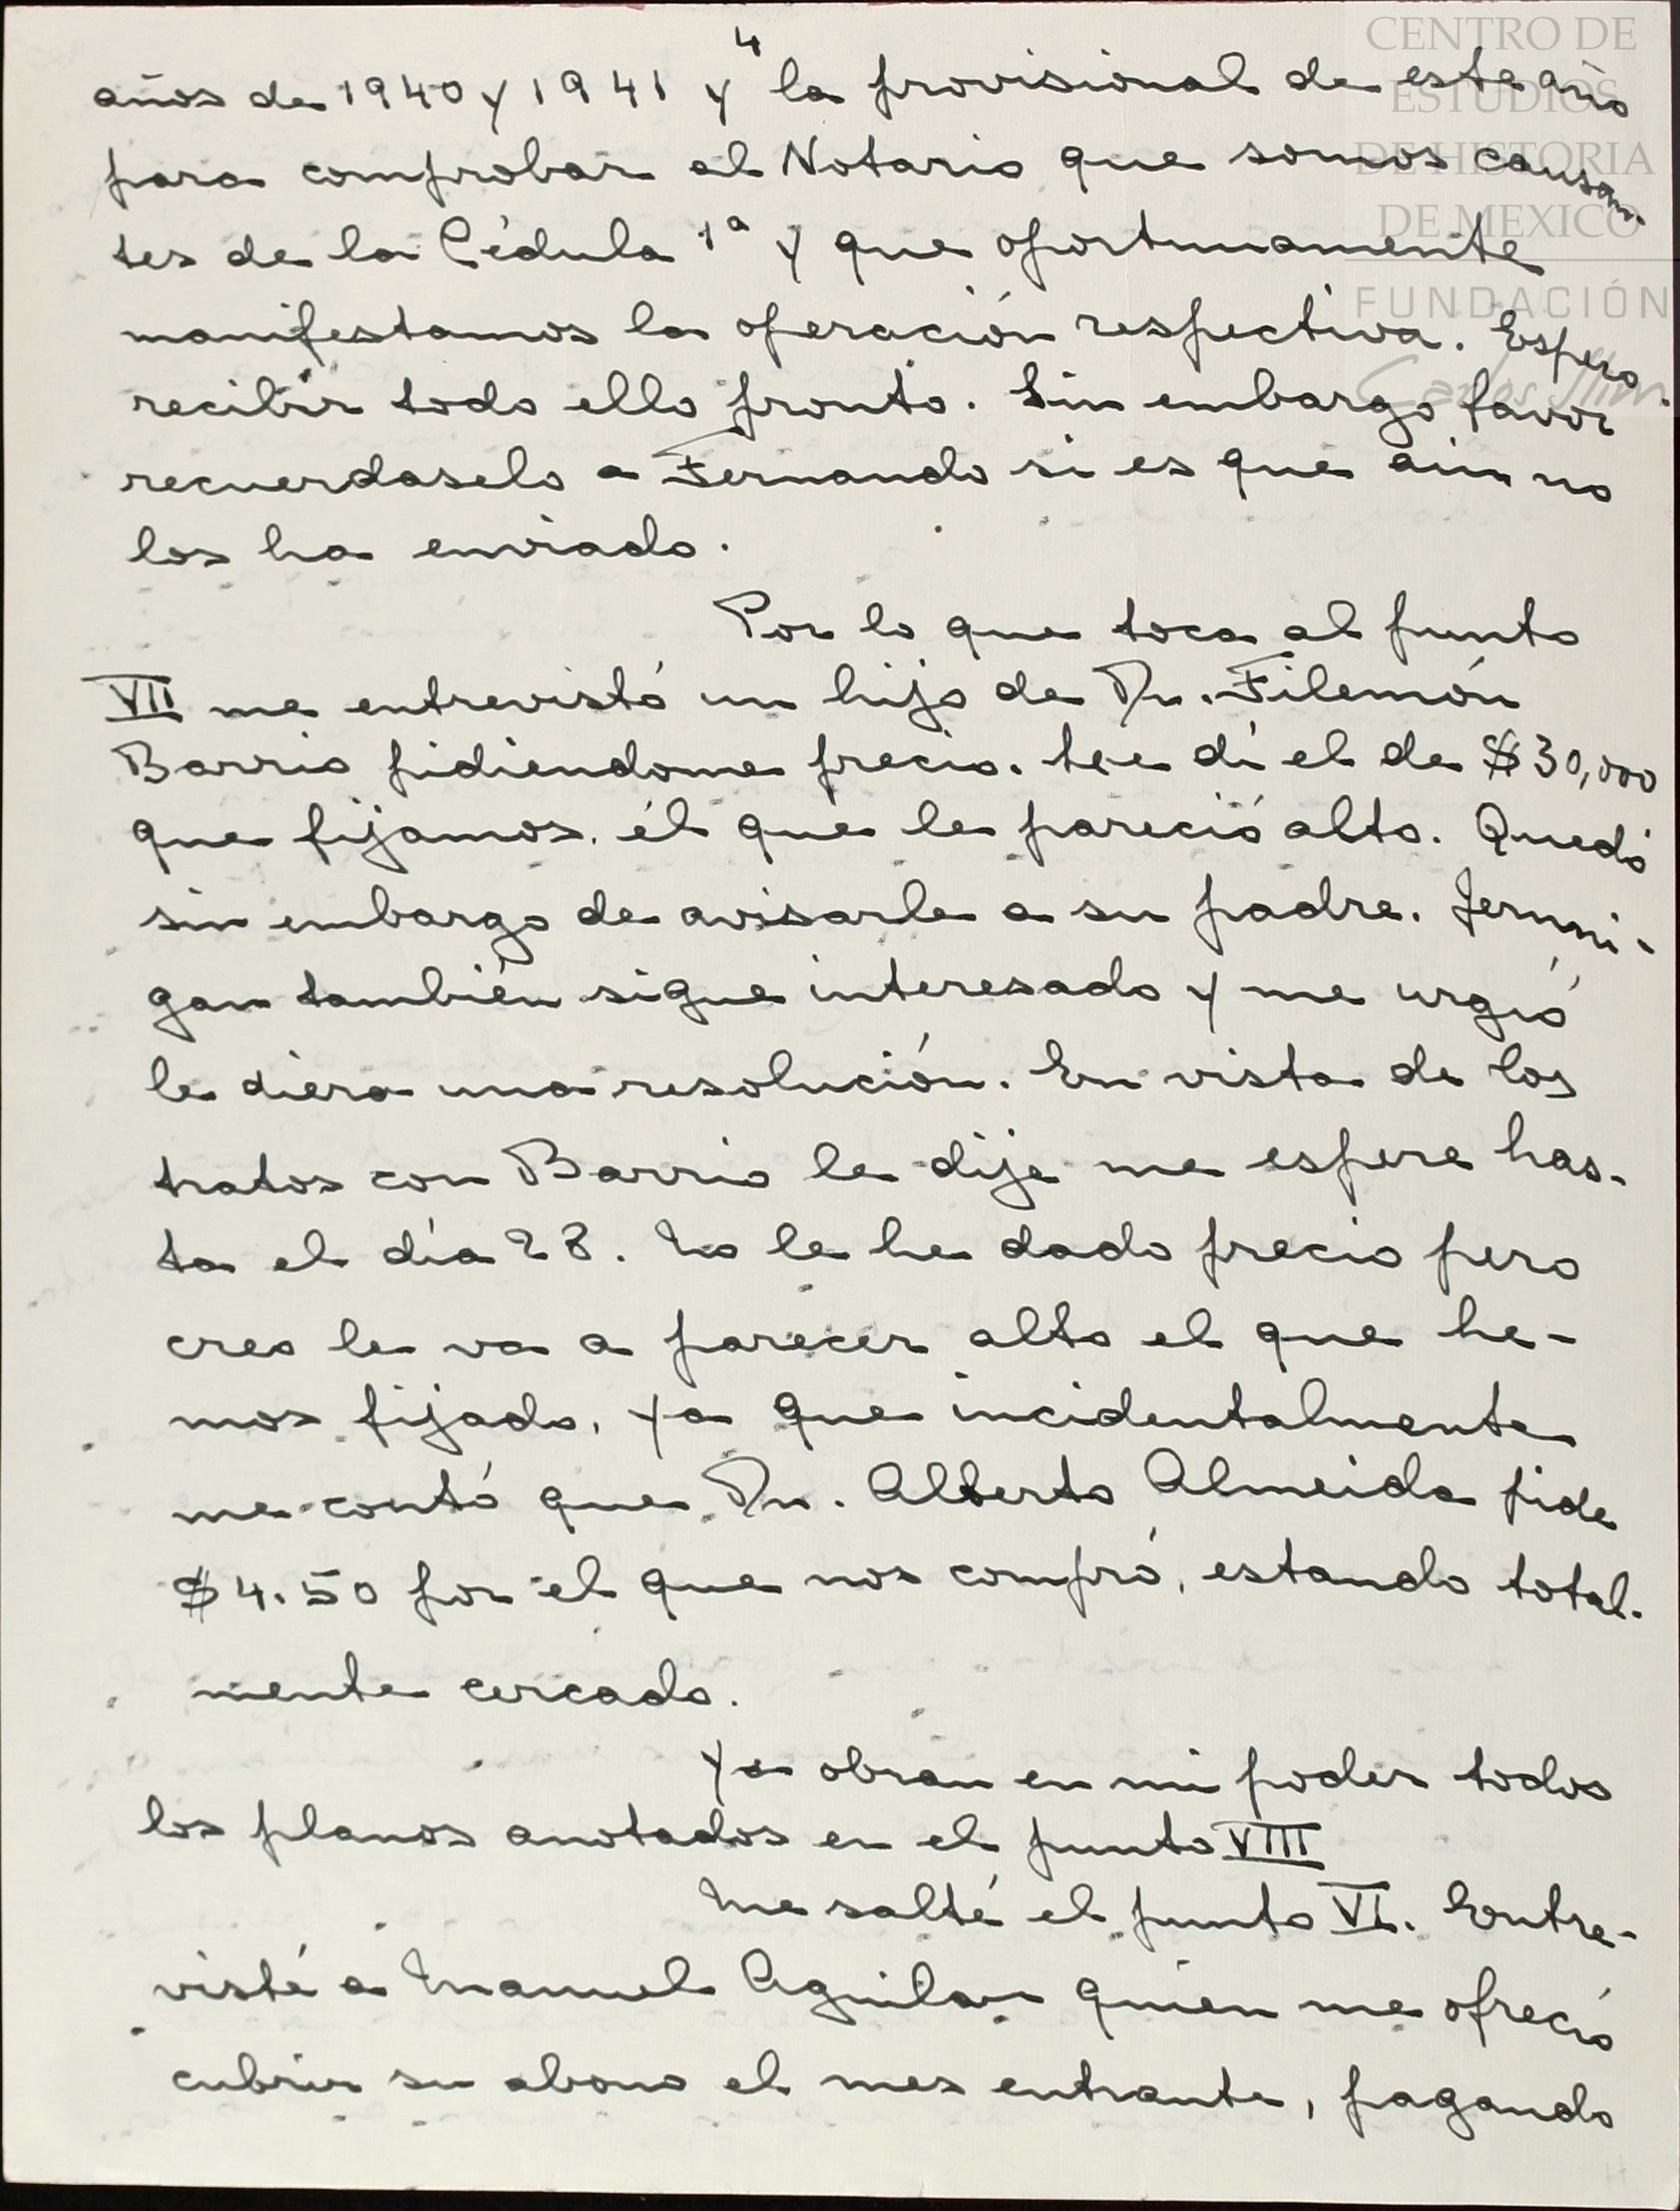 4
años de 1940 y 1941 y la provisional de este año
para comprobar al Notario que somos causan-
tes de la Cédula 1ª y que oportunamente
manifestamos la operación respectiva. Espero
recibir todo ello pronto. Sin embargo favor
recuerdaselo a Fernando si es que aún no
los ha enviado.
Por lo que toca al punto
VII me entrevistó un hijo de Dn. Filemón
Barrio pidiendome precio. Le dí el de $30,000
que fijamos, él que le pareció alto. Quedó
sin embargo de avisarle a su padre. Jerni-
gan también sigue interesado y me urgió
le diera una resolución. En vista de los
tratos con Barrio le dije me espere has-
ta el día 28. No le he dado precio pero
creo le va a parecer alto el que he-
mos fijado, ya que incidentalmente
me contó que Dn. Alberto Almeida pide
$4.50 por el que nos compró, estando total-
mente cercado.
Ya obran en mi poder todos
los planos anotados en el punto VIII
Me salté el punto VI. Entre-
visté a Manuel Aguilar quien me ofreció
cubrir su abono el mes entrante, pagando
CENTRO DE
ESTUDIOS
DE HISTORIA
DE MEXICO
FUNDACIÓN
Carlos Slim